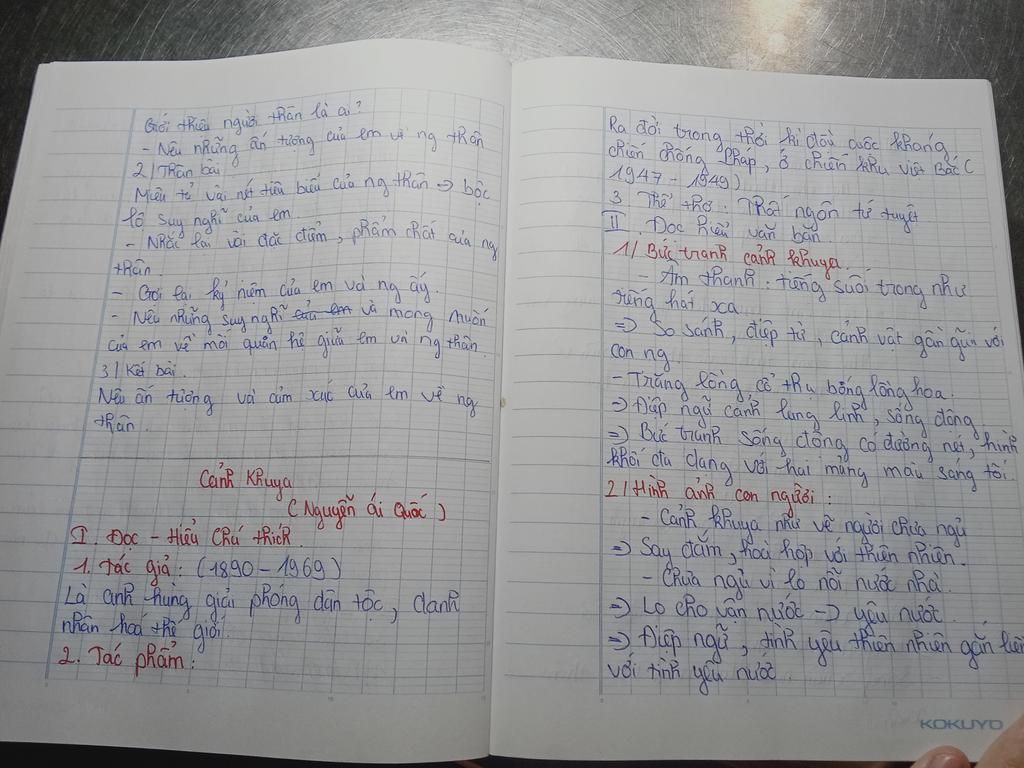 Giới thiệu người thân là ai?
- Nêu những ấn tượng của em về ng thân
2/ Thân bài.
Miêu tả vài nét tiêu biểu của ng thân => bộc
lộ suy nghĩ của em.
- Nhắc lại vài đặc điểm, phẩm chất của ng
thân.
- Gợi lại kỷ niệm của em và ng ấy.
- Nêu những suy nghĩ của em và mong muốn
của em về mối quan hệ giữa em và ng thân.
3/ Kết bài.
Nêu ấn tượng và cảm xúc của em về ng
thân.
Cảnh Khuya
(Nguyễn ái Quốc)
I. Đọc - Hiểu Chú thích.
1. Tác giả: (1890 - 1969)
Là anh hùng giải phóng dân tộc, danh
nhân hoá thế giới.
2. Tác phẩm:
Ra đời trong thời kì đầu cuộc kháng
chiến chống Pháp, ở chiến khu Việt Bắc (
1947 - 1949)
3. Thể thơ. Thất ngôn tứ tuyệt
II. Đọc hiểu văn bản.
1/ Bức tranh cảnh khuya.
- Âm thanh: tiếng suối trong như
tiếng hát xa.
=> So sánh, điệp từ, cảnh vật gần gũi với
con ng.
- Trăng lồng cổ thụ bóng lồng hoa.
=> Điệp ngữ cảnh lung linh, sống động
=> Bức tranh sống động có đường nét, hình
khối đa dạng với hai mảng màu sáng tối.
2/ Hình ảnh con người:
- Cảnh khuya như vẽ người chưa ngủ
=> Say đắm, hoà hợp với thiên nhiên.
- Chưa ngủ vì lo nỗi nước nhà.
=> Lo cho vận nước -> yêu nước.
=> Điệp ngữ, tình yêu thiên nhiên gắn liền
với tình yêu nước.
KOKUYO